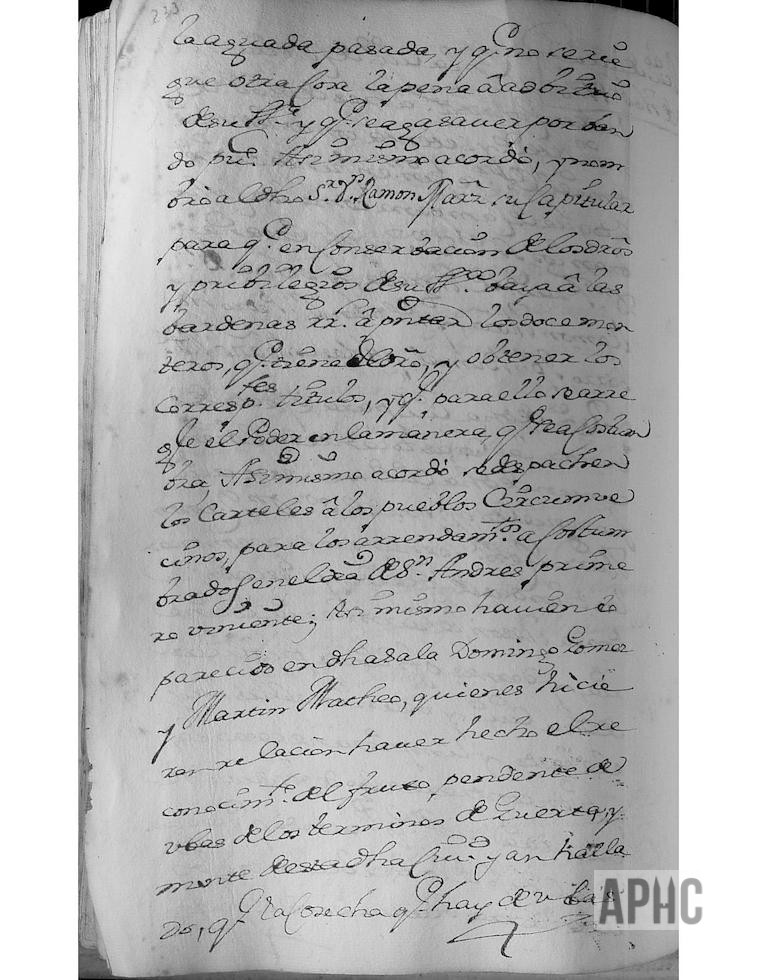 233
la aguada pasada, y q.e no se rie
gue otra cosa la pena â adbitrio
de su S.ª y q.e se aga saver por ban
do pu.co Asi mismo acordó, y nom
brò al dho S.r D.n Ramon Marz. su Capitular
para q.e en Conserbacion de los dros
y pribilegios de su S.ª baya â las
bardenas rr.s â pntar los doce mon
teros, q.e tiene de dro, y obtener los
corresp.tes titulos, y q.e para ello se arre
gle el Poder en la manera, q.e se a Costum
bra, Asi mismo acordò se despachen
los Carteles â los pueblos Circumve
cinos, para los arrendam.tos a Costum
brados en el dia de S.n Andres prime
ro viniente; Asi mismo haviendo
parecido en dha sala Domingo Gomez
y Martin Matheo, quienes hicie
ron relacion haver hecho el re
conocim.to del fruto pendiente de
ubas de los terminos de Huerta, y
monte de esta dha Ciu.d y an halla
do, q.e la Cosecha q.e hay de ubas
APHC